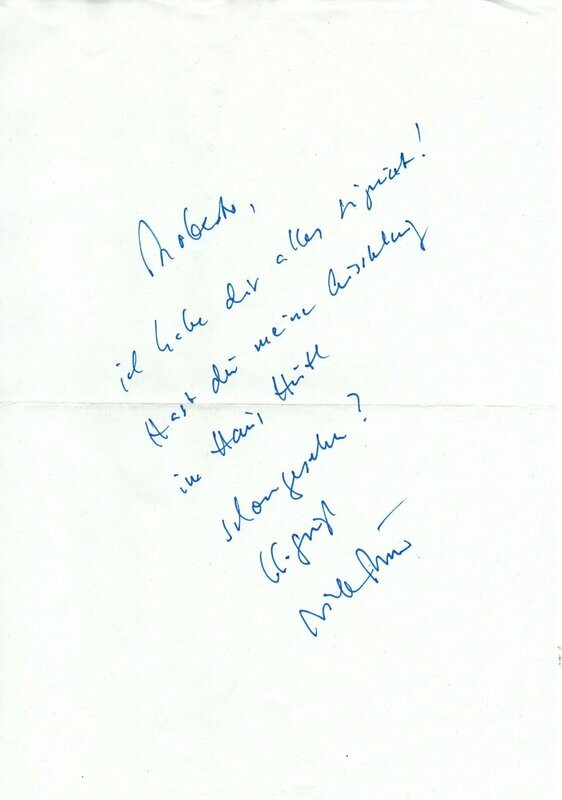 Roberto,
ich habe dir alles signiert!
Hast du meine Ausstellung
im Haus
schon gesehen?